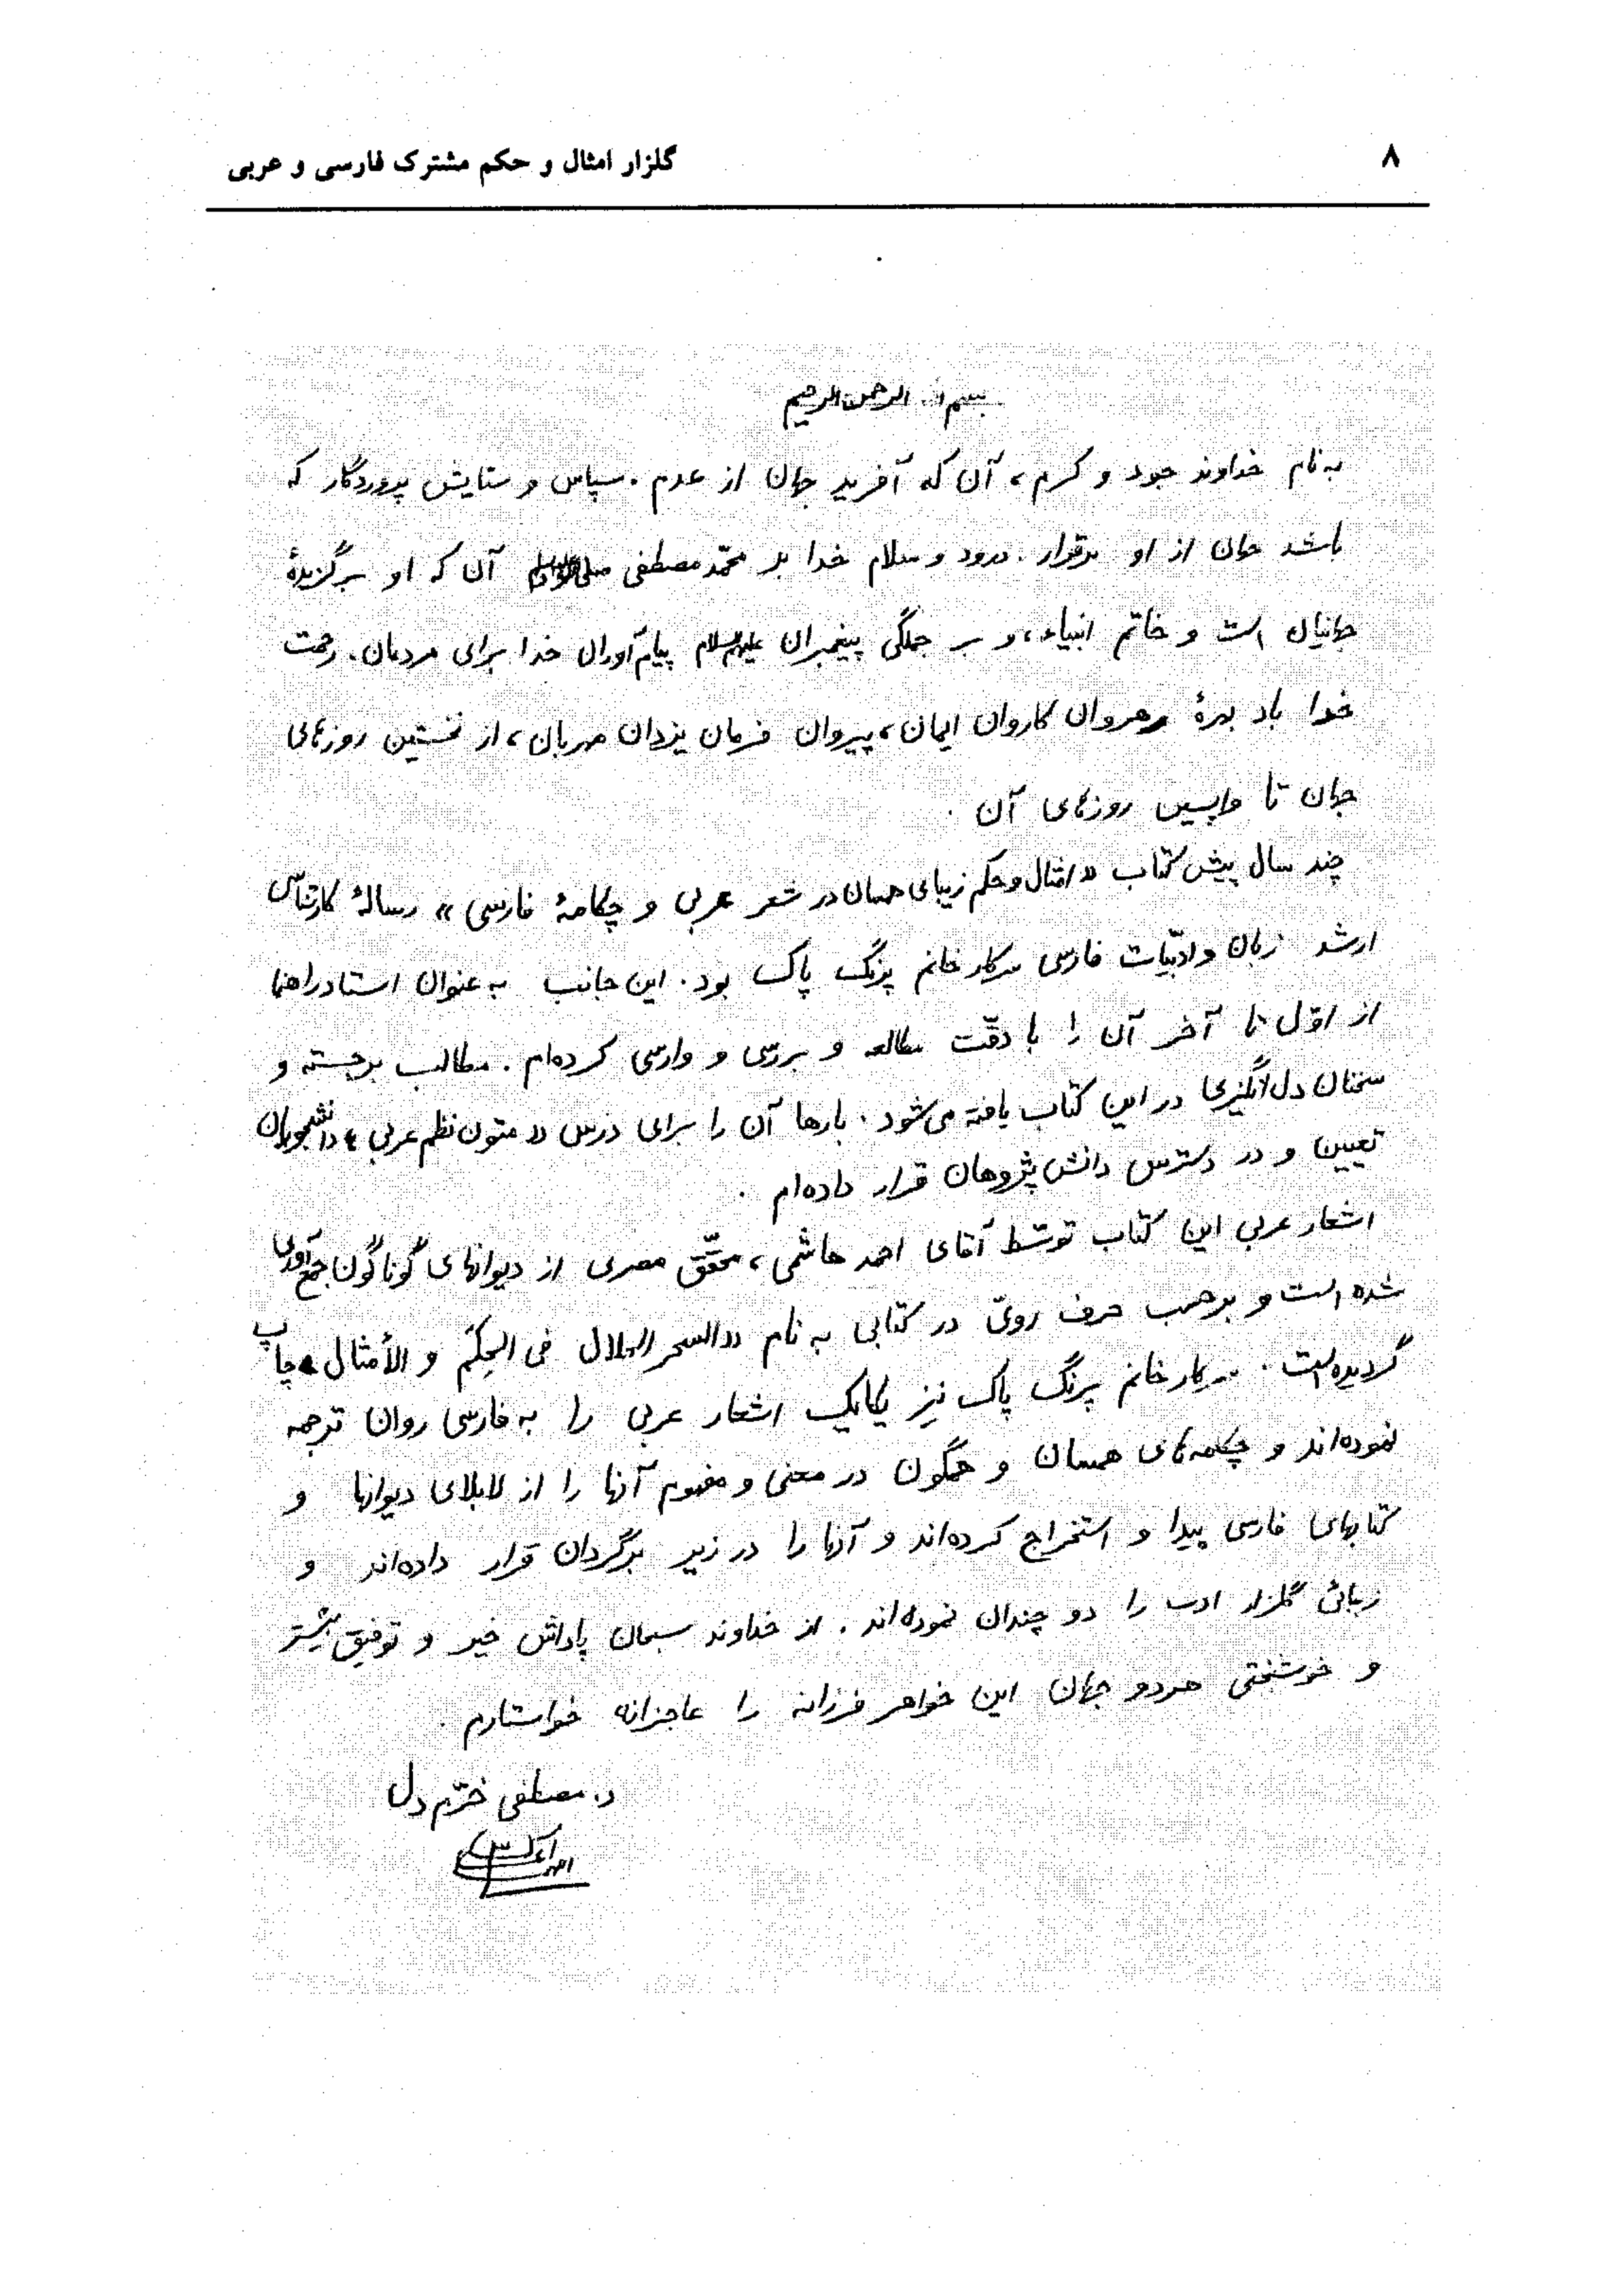 ۸
گلزار امثال و حکم مشترک فارسی و عربی
بسم الله الرحمن الرحیم
به نام خداوند جود و کرم، آن که آفرید جهان از عدم. سپاس و ستایش پروردگار که
باشد جهان از او برقرار. درود و سلام خدا بر محمّد مصطفی آن که او برگزیدهٔ
جهانیان است و خاتم انبیاء، و بر جملگی پیغمبران علیهم‌السلام پیام‌آوران خدا برای مردمان. رحمت
خدا باد بهرهٔ رهروان کاروان ایمان، پیروان فرمان یزدان مهربان، از نخستین روزهای
جهان تا واپسین روزهای آن.
چند سال پیش کتاب «امثال و حکم زیبای همسان در شعر عربی و چکامهٔ فارسی» رسالهٔ کارشناسی
ارشد زبان و ادبیّات فارسی سرکار خانم پرنگ پاک بود. این جانب به عنوان استاد راهنما
از اوّل تا آخر آن را با دقّت مطالعه و بررسی و وارسی کرده‌ام. مطالب برجسته و
سخنان دل‌انگیزی در این کتاب یافته می‌شود. بارها آن را برای درس «متون نظم عربی» دانشجویان
تعیین و در دسترس دانش‌پژوهان قرار داده‌ام.
اشعار عربی این کتاب توسّط آقای احمد هاشمی، محقّق مصری از دیوانهای گوناگون جمع‌آوری
شده است و برحسب حرف رویّ در کتابی به نام «السحر الحلال فی الحِکَم و الأمثال» چاپ
گردیده است. سرکار خانم پرنگ پاک نیز یکایک اشعار عربی را به فارسی روان ترجمه
نموده‌اند و چکامه‌های همسان و همگون در معنی و مفهوم آنها را از لابلای دیوانها و
کتابهای فارسی پیدا و استخراج کرده‌اند و آنها را در زیر برگردان قرار داده‌اند و
زیبائی گلزار ادب را دو چندان نموده‌اند. از خداوند سبحان پاداش خیر و توفیق بیشتر
و خوشبختی هر دو جهان این خواهر فرزانه را عاجزانه خواستارم.
د. مصطفی خرّم دل